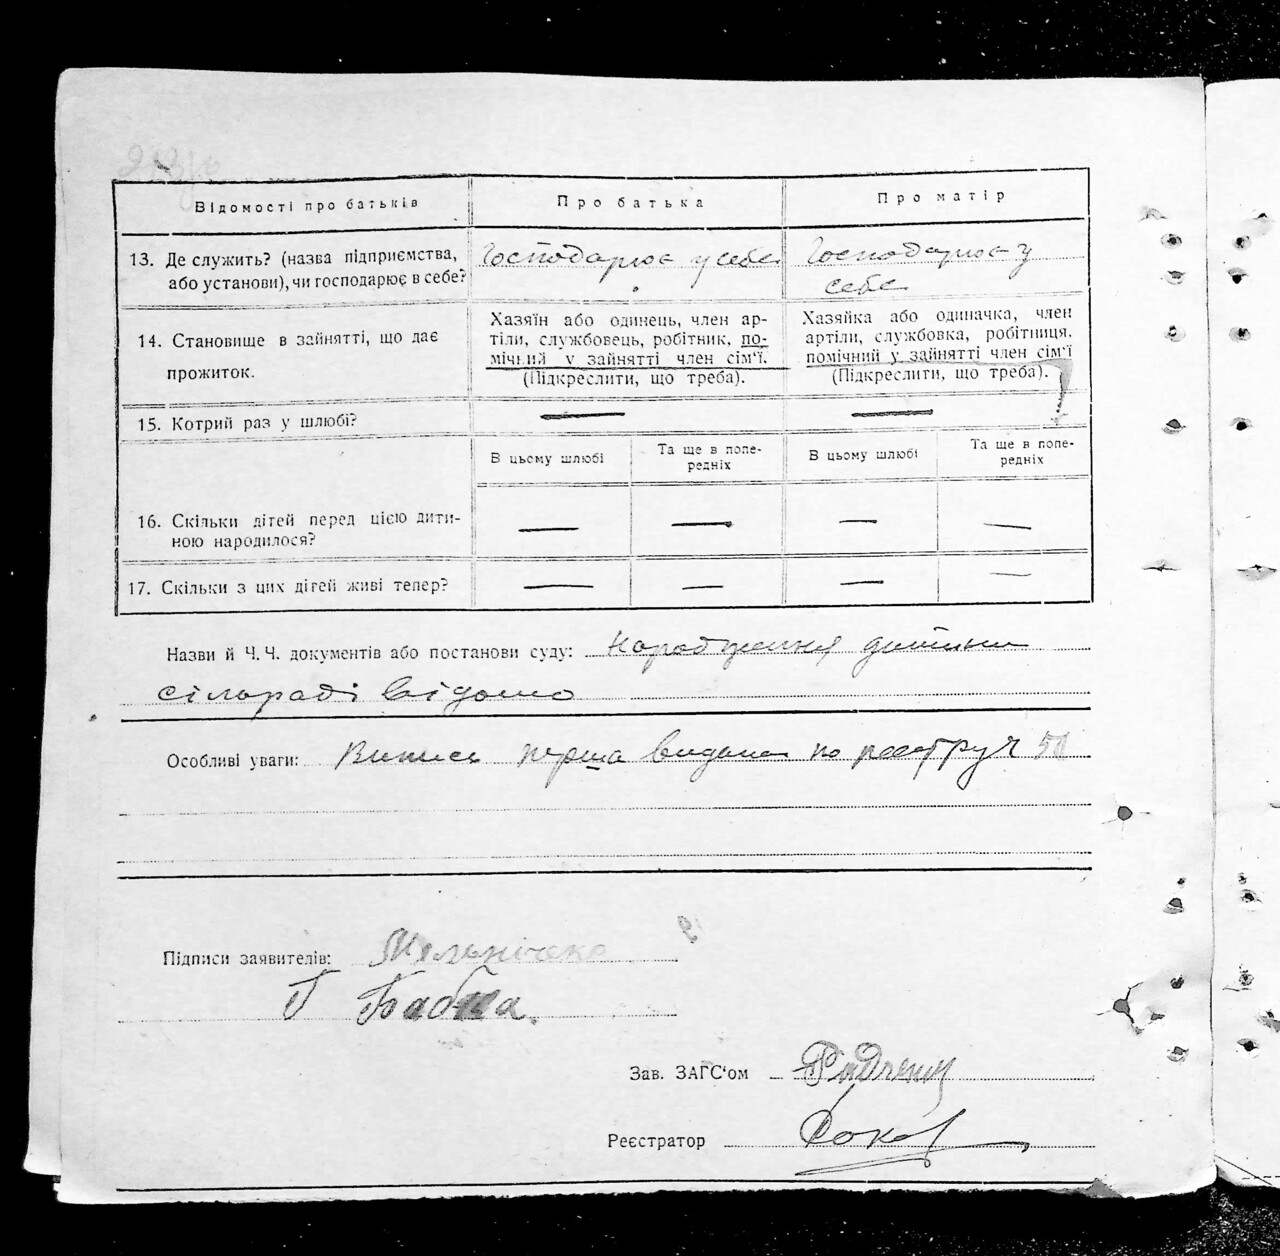 Відомості про батьків
Про батька
Про матір
13. Де служить? (назва підприємства,
або установи), чи господарює в себе?
Господарює у себе
Господарює у
себе
14. Становище в зайнятті, що дає
прожиток.
Хазяїн або одинець, член ар-
тіли, службовець, робітник, по-
мічний у зайнятті член сім'ї.
(Підкреслити, що треба).
Хазяйка або одиначка, член
артіли, службовка, робітниця.
помічний у зайнятті член сім'ї
(Підкреслити, що треба).
15. Котрий раз у шлюбі?
—
—
В цьому шлюбі
Та ще в попе-
редніх
В цьому шлюбі
Та ще в попе-
редніх
16. Скільки дітей перед цією дити-
ною народилося?
— — — —
17. Скільки з цих дітей живі тепер?
— — — —
Назви й Ч. Ч. документів або постанови суду: Народження дитини
сільраді відомо
Особливі уваги: Випись перша видана по реєстру Ч
Підписи заявителів:
Г
Зав. ЗАГС'ом
Реєстратор